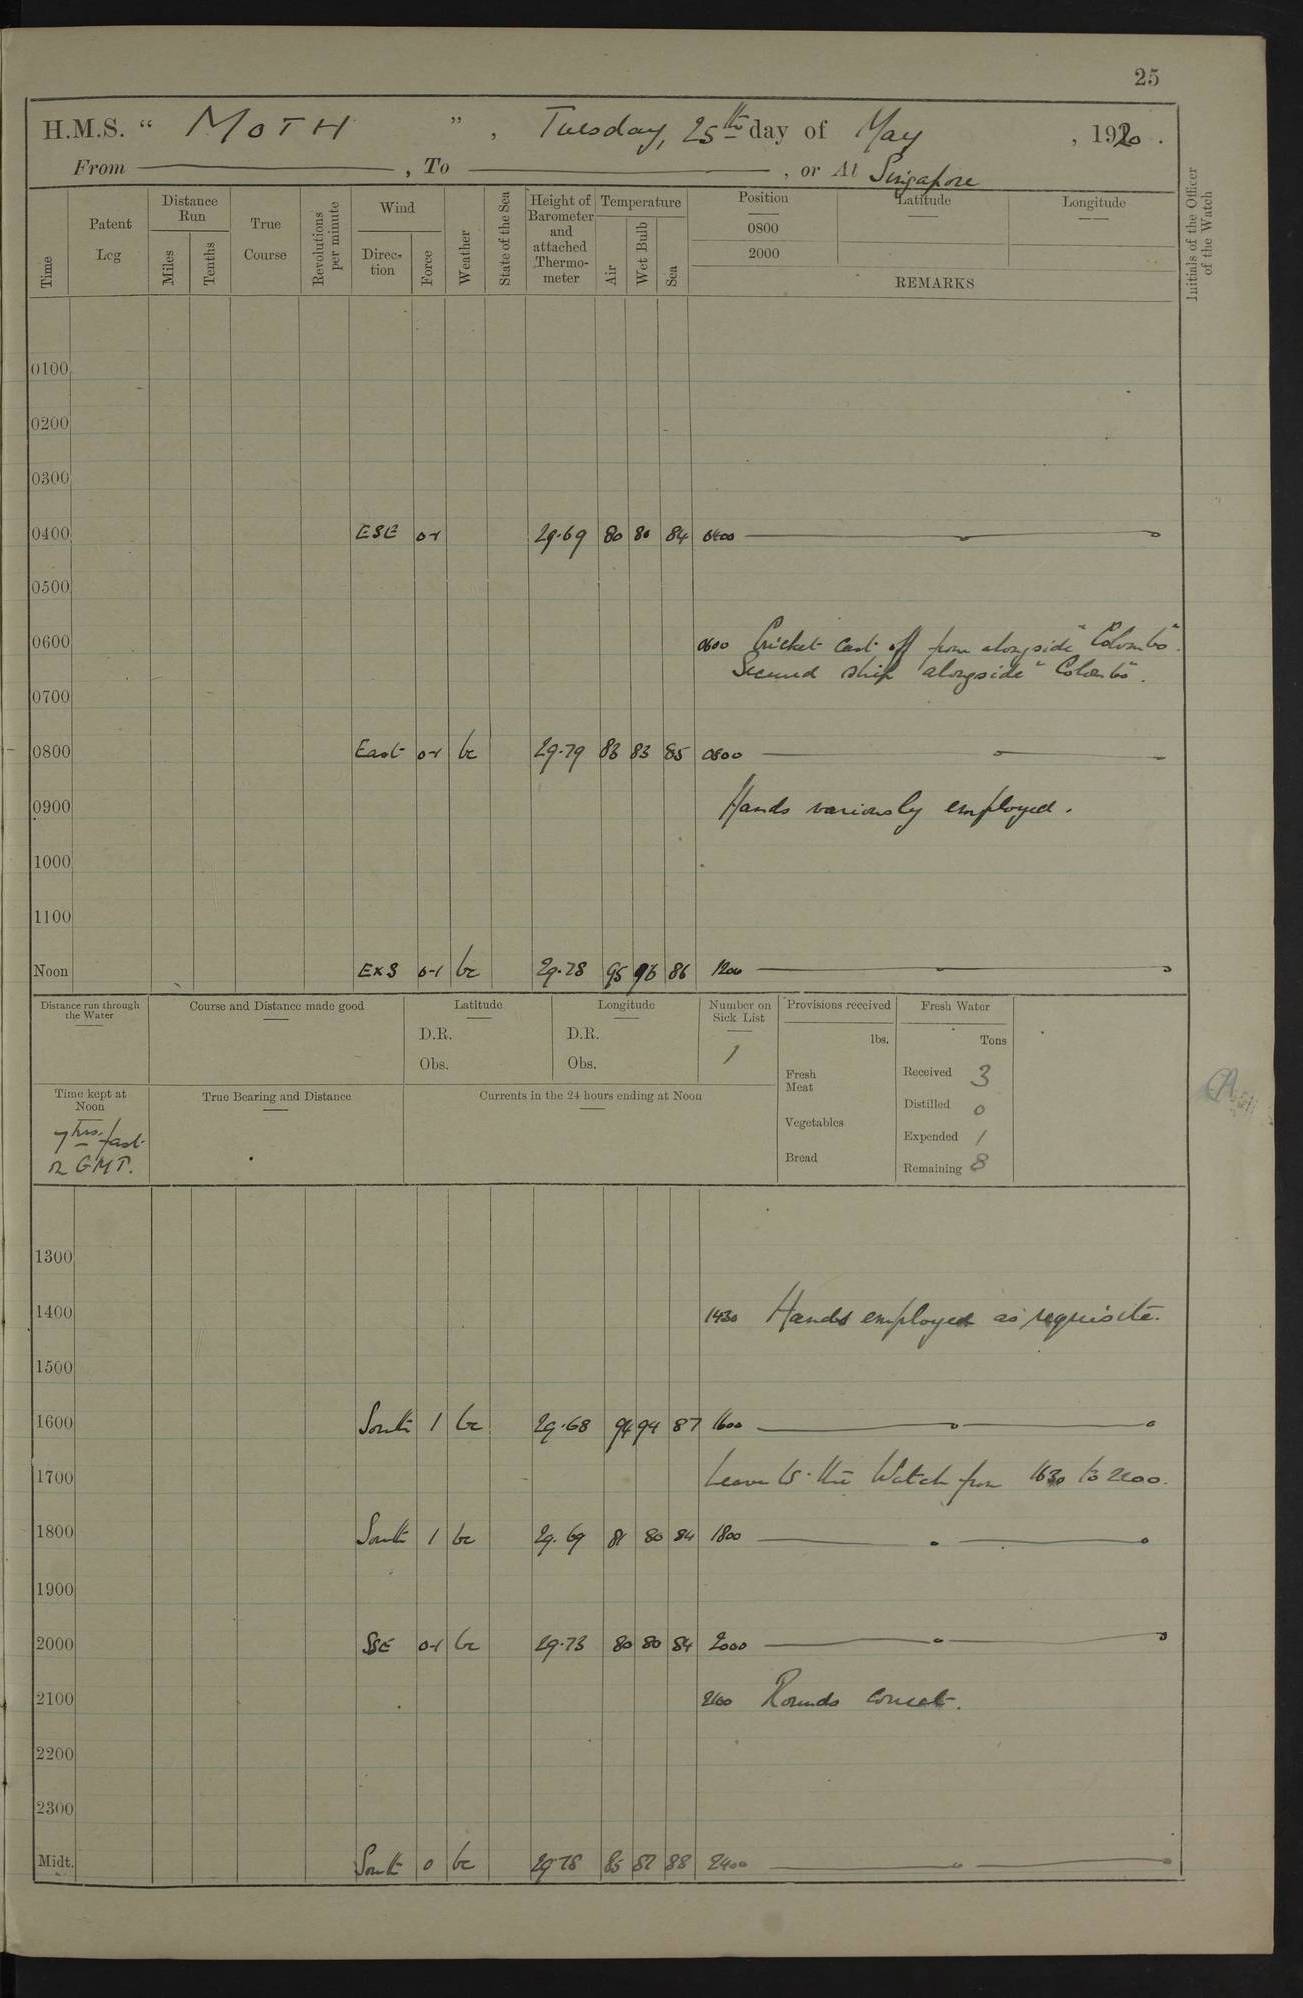 25
H.M.S. “ MOTH ” , Tuesday, 25th day of May , 1920 .
From , To , or At Singapore
Time
Patent Log
Distance Run
Miles
Tenths
True Course
Revolutions per minute
Wind
Direction
Force
Weather
State of the Sea
Height of Barometer and attached Thermometer
Temperature
Air
Wet Bulb
Sea
Position
0800
2000
Latitude
Longitude
REMARKS
Initials of the Officer of the Watch
0100
0200
0300
0400 ESE 0-1 29.69 80 80 84 0400
0500
0600 0600 Cricket cast off from alongside "Colombo".
Secured ship alongside "Colombo".
0700
0800 East 0-1 bc 29.79 83 83 85 0800
0900 Hands variously employed.
1000
1100
Noon ExS 0-1 bc 29.78 95 96 86 1200
Distance run through the Water
Course and Distance made good
Latitude
D.R.
Obs.
Longitude
D.R.
Obs.
Number on Sick List
1
Provisions received
lbs.
Fresh Meat
Vegetables
Bread
Fresh Water
Tons
Received 3
Distilled 0
Expended 1
Remaining 8
Time kept at Noon
7 hrs. fast
on GMT.
True Bearing and Distance
Currents in the 24 hours ending at Noon
1300
1400 1430 Hands employed as requisite.
1500
1600 South 1 bc 29.68 94 94 87 1600
1700 Leave to the Watch from 1630 to 2200.
1800 South 1 bc 29.69 81 80 84 1800
1900
2000 SSE 0-1 bc 29.73 80 80 84 2000
2100 2100 Rounds correct.
2200
2300
Midt. South 0 bc 29.78 85 87 88 2400